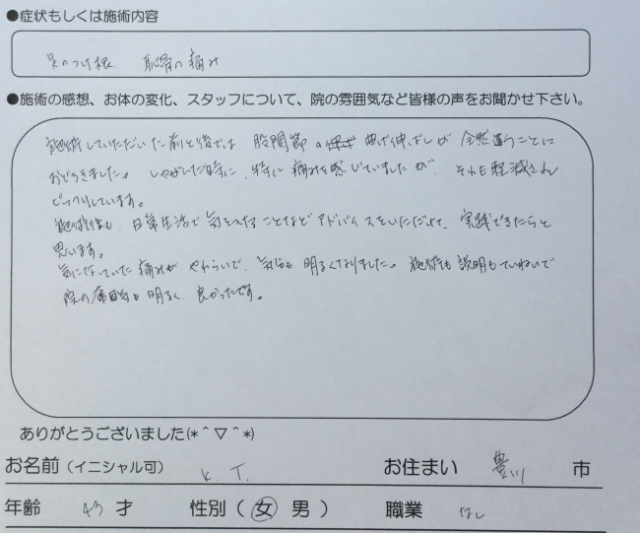 ●症状もしくは施術内容
足のつけ根 恥骨の痛み
●施術の感想、お体の変化、スタッフについて、院の雰囲気など皆様の声をお聞かせ下さい。
施術していただいた前と後では、股関節の曲げ伸ばしが全然違うことに
おどろきました。しゃがんだ時に、特に痛みを感じていましたが、それも軽減され
びっくりしています。
施術後も、日常生活で気をつけることなどアドバイスをいただいて、実践できたらと
思います。
気になっていた痛みがやわらいで、気分も明るくなりました。施術も説明もていねいで
院の雰囲気も明るく良かったです。
ありがとうございました(*＾▽＾*)
お名前(イニシャル可) K.T. お住まい 豊川 市
年齢 43 才 性別( 女 男 ) 職業 なし